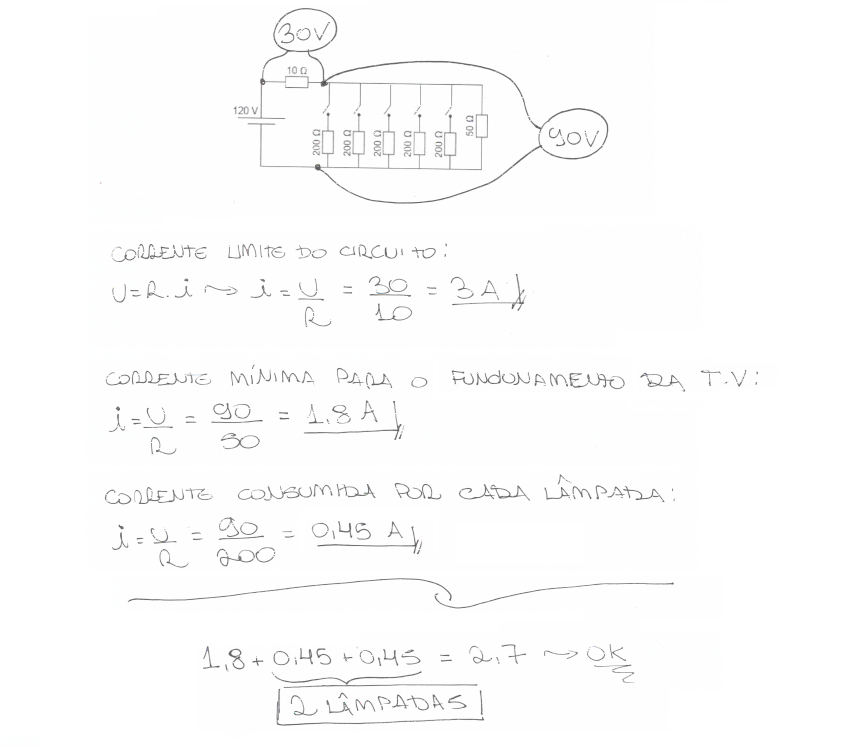 30V
10 Ω
120 V
200 Ω
200 Ω
200 Ω
200 Ω
200 Ω
50 Ω
90V
CORRENTE LIMITE DO CIRCUITO:
U=R.i ~> i = U/R = 30/10 = 3 A
CORRENTE MÍNIMA PARA O FUNCIONAMENTO DA T.V:
i = U/R = 90/50 = 1,8 A
CORRENTE CONSUMIDA POR CADA LÂMPADA:
i = U/R = 90/200 = 0,45 A
1,8 + 0,45 + 0,45 = 2,7 ~> OK
2 LÂMPADAS